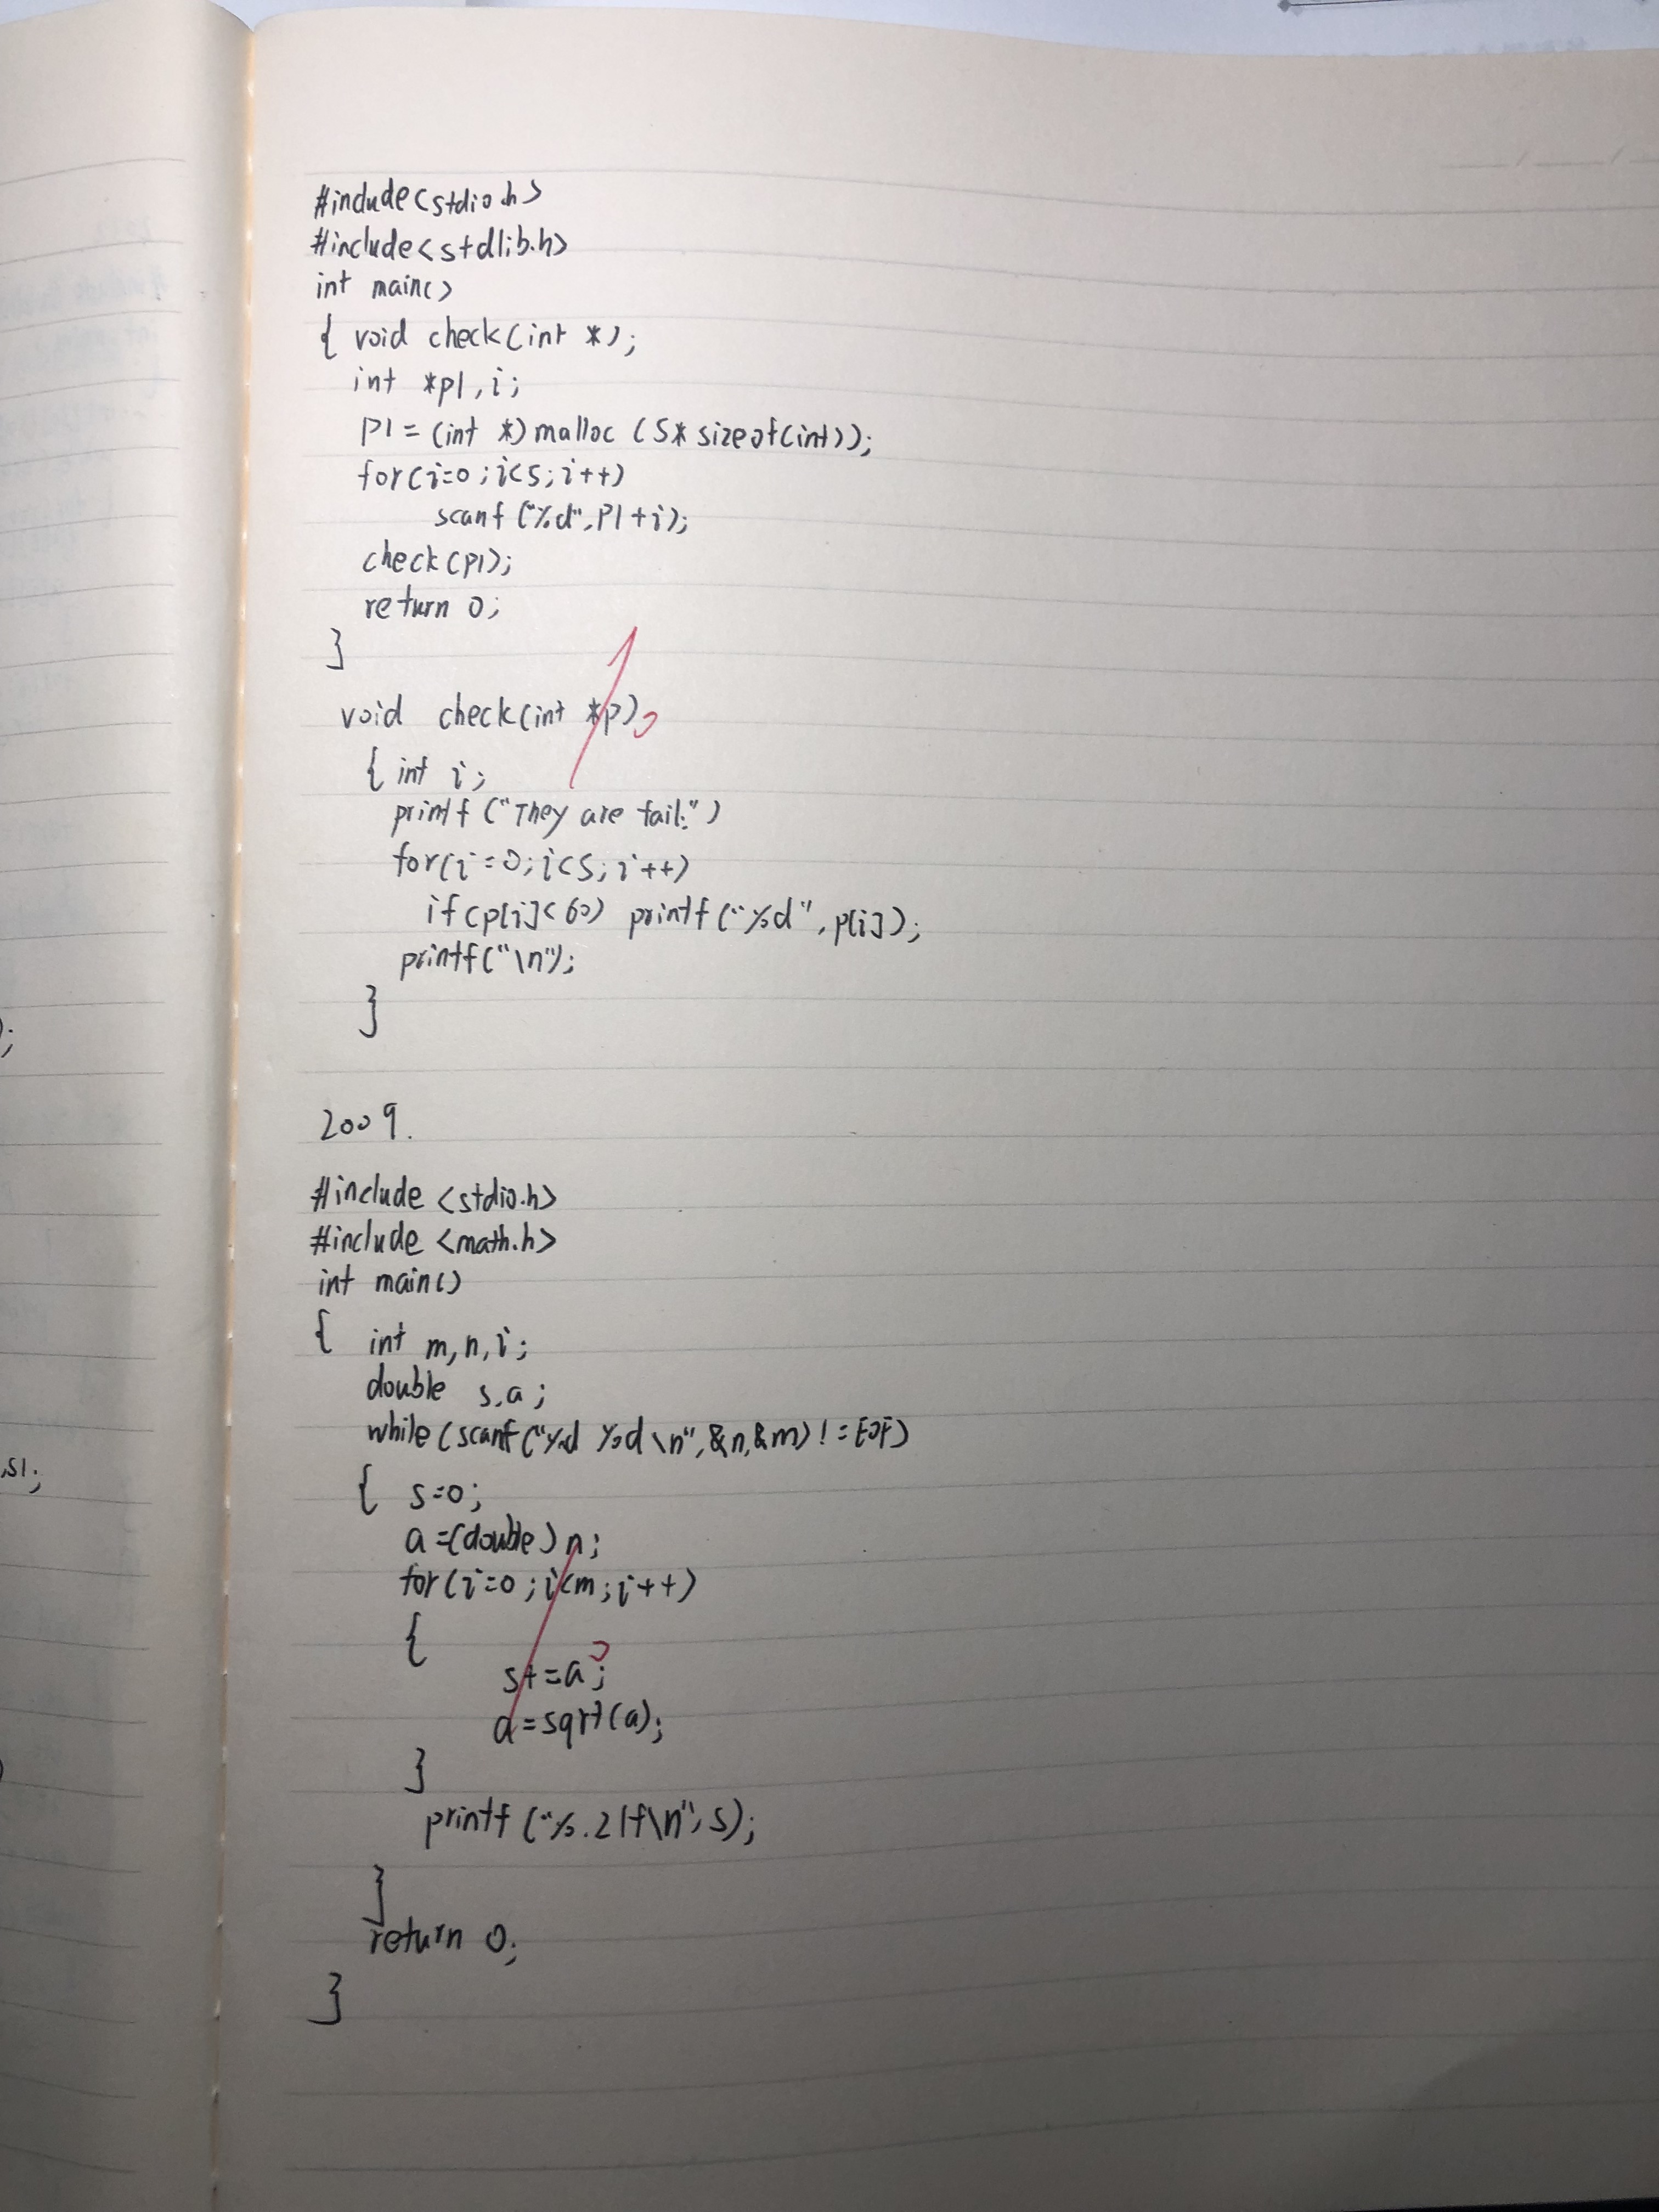 #include<stdio.h>
#include<stdlib.h>
int main()
{ void check(int *);
int *p1,i;
p1=(int *)malloc(5*sizeof(int));
for(i=0;i<5;i++)
scanf("%d",p1+i);
check(p1);
return 0;
}
void check(int *p)
{ int i;
printf("They are fail:")
for(i=0;i<5;i++)
if(p[i]<60) printf("%d",p[i]);
printf("\n");
}
2009.
#include <stdio.h>
#include <math.h>
int main()
{ int m,n,i;
double s,a;
while(scanf("%d %d\n",&n,&m)!=EOF)
{ s=0;
a=(double)n;
for(i=0;i<m;i++)
{
s+=a;
a=sqrt(a);
}
printf("%.2lf\n",s);
}
return 0;
}
);
,s1;
)